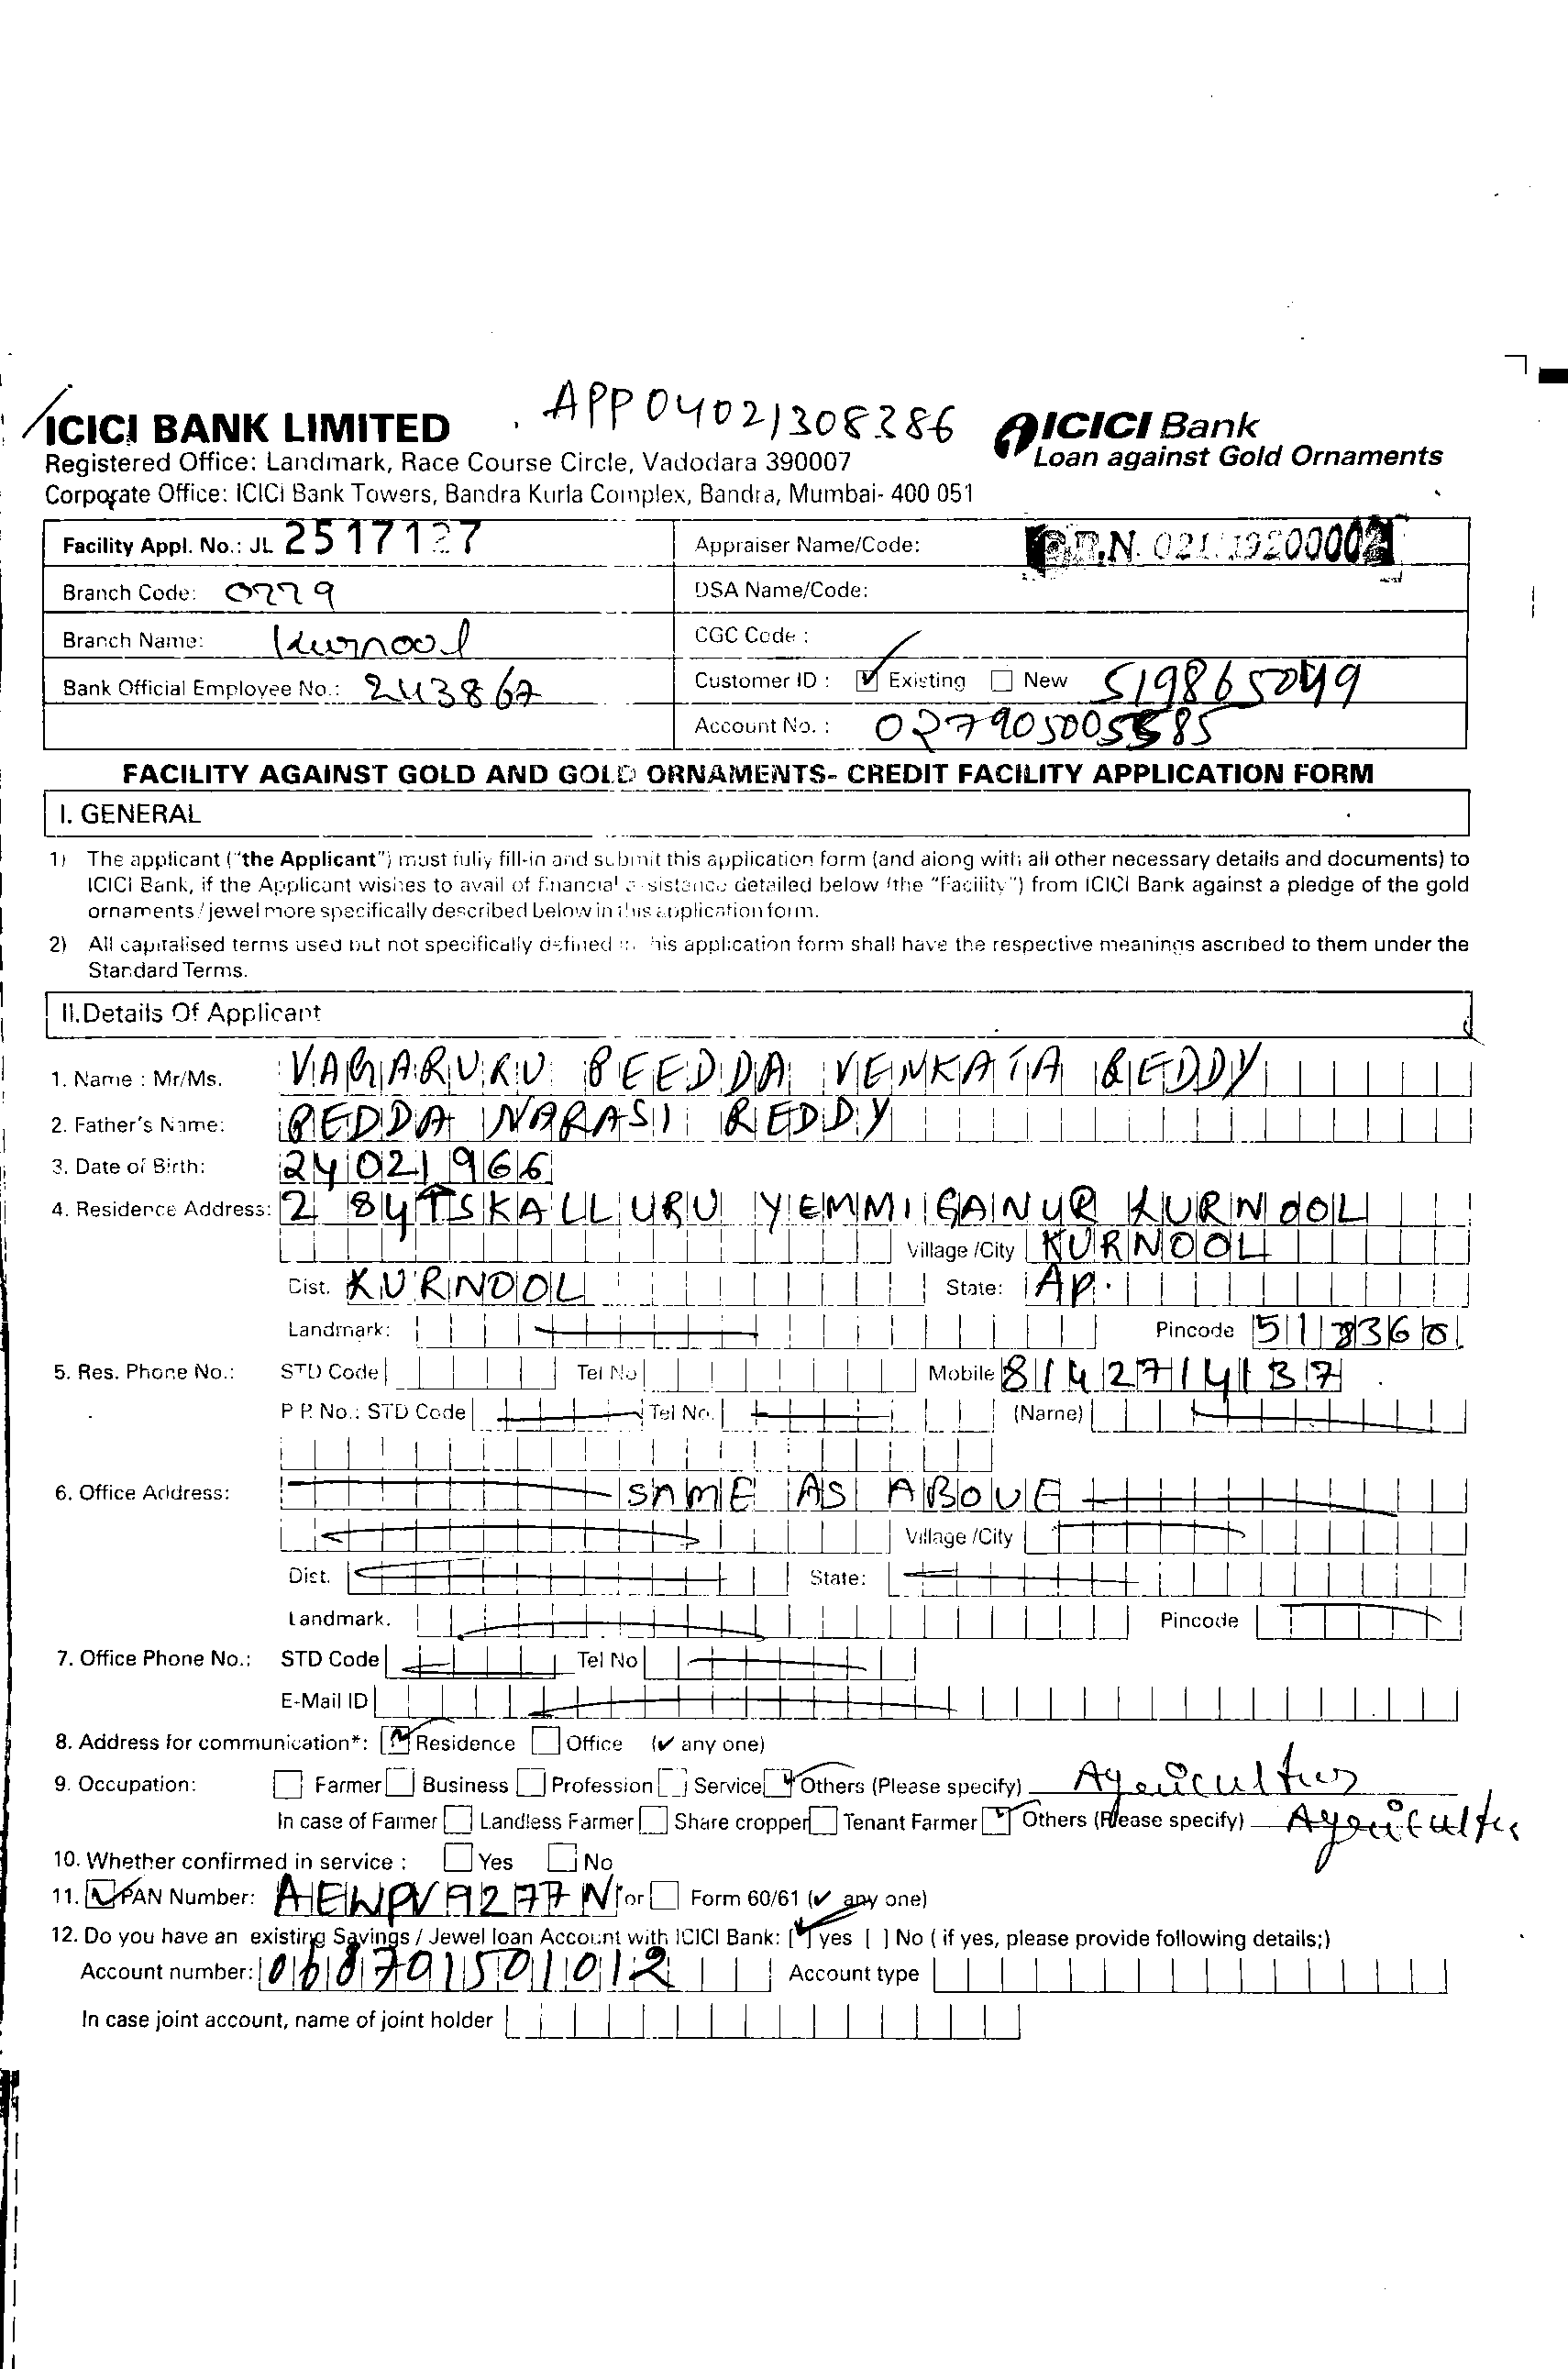 APP04021308386
ICICI BANK LIMITED
ICICI Bank
Registered Office: Landmark, Race Course Circle, Vadodara 390007
Loan against Gold Ornaments
Corporate Office: ICICI Bank Towers, Bandra Kurla Complex, Bandra, Mumbai- 400 051
Facility Appl. No.: JL 2517127 Appraiser Name/Code:
Branch Code: 0279 DSA Name/Code:
Branch Name: Kurnool CGC Code :
Bank Official Employee No.: 243867 Customer ID : Existing New 519865049
Account No. : 027905005585
FACILITY AGAINST GOLD AND GOLD ORNAMENTS- CREDIT FACILITY APPLICATION FORM
I. GENERAL
1) The applicant ("the Applicant") must fully fill-in and submit this application form (and along with all other necessary details and documents) to
ICICI Bank, if the Applicant wishes to avail of financial assistance detailed below (the "Facility") from ICICI Bank against a pledge of the gold
ornaments / jewel more specifically described below in this application form.
2) All capitalised terms used but not specifically defined in this application form shall have the respective meanings ascribed to them under the
Standard Terms.
II.Details Of Applicant
1. Name : Mr/Ms. VENKATA REDDY
2. Father's Name: PEDDA NARASI REDDY
3. Date of Birth: 24021966
4. Residence Address: 2 84 TS KALLURU YEMMIGANUR KURNOOL
Village /City KURNOOL
Dist. KURNOOL State: AP.
Landmark: Pincode 518360
5. Res. Phone No.: STD Code Tel No Mobile 8142714137
P P. No.: STD Code Tel No. (Name)
6. Office Address: SAME AS ABOVE
Village /City
Dist. State:
Landmark. Pincode
7. Office Phone No.: STD Code Tel No
E-Mail ID
8. Address for communication*: Residence Office (✔ any one)
9. Occupation: Farmer Business Profession Service Others (Please specify)
In case of Farmer Landless Farmer Share cropper Tenant Farmer Others (Please specify)
10. Whether confirmed in service : Yes No
11. PAN Number: AEWPV9277N or Form 60/61 (✔ any one)
12. Do you have an existing Savings / Jewel loan Account with ICICI Bank: [ ] yes [ ] No ( if yes, please provide following details;)
Account number: 068701501012 Account type
In case joint account, name of joint holder